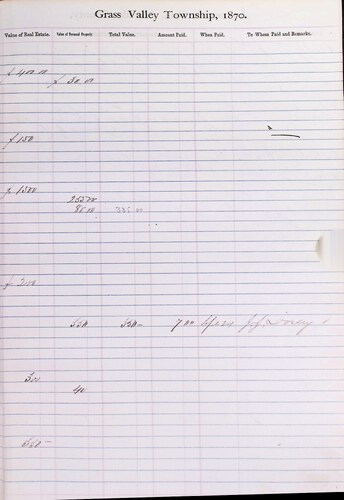 Grass Valley Township, 1870.
Value of Real Estate. Value of Personal Property Total Value. Amount Paid. When Paid. To Whom Paid and Remarks.
$ 400 00
$ 50 00
$ 150
$ 1500
255 00
80 00 335 00
$ 200
520 520 - 7 00
300
40